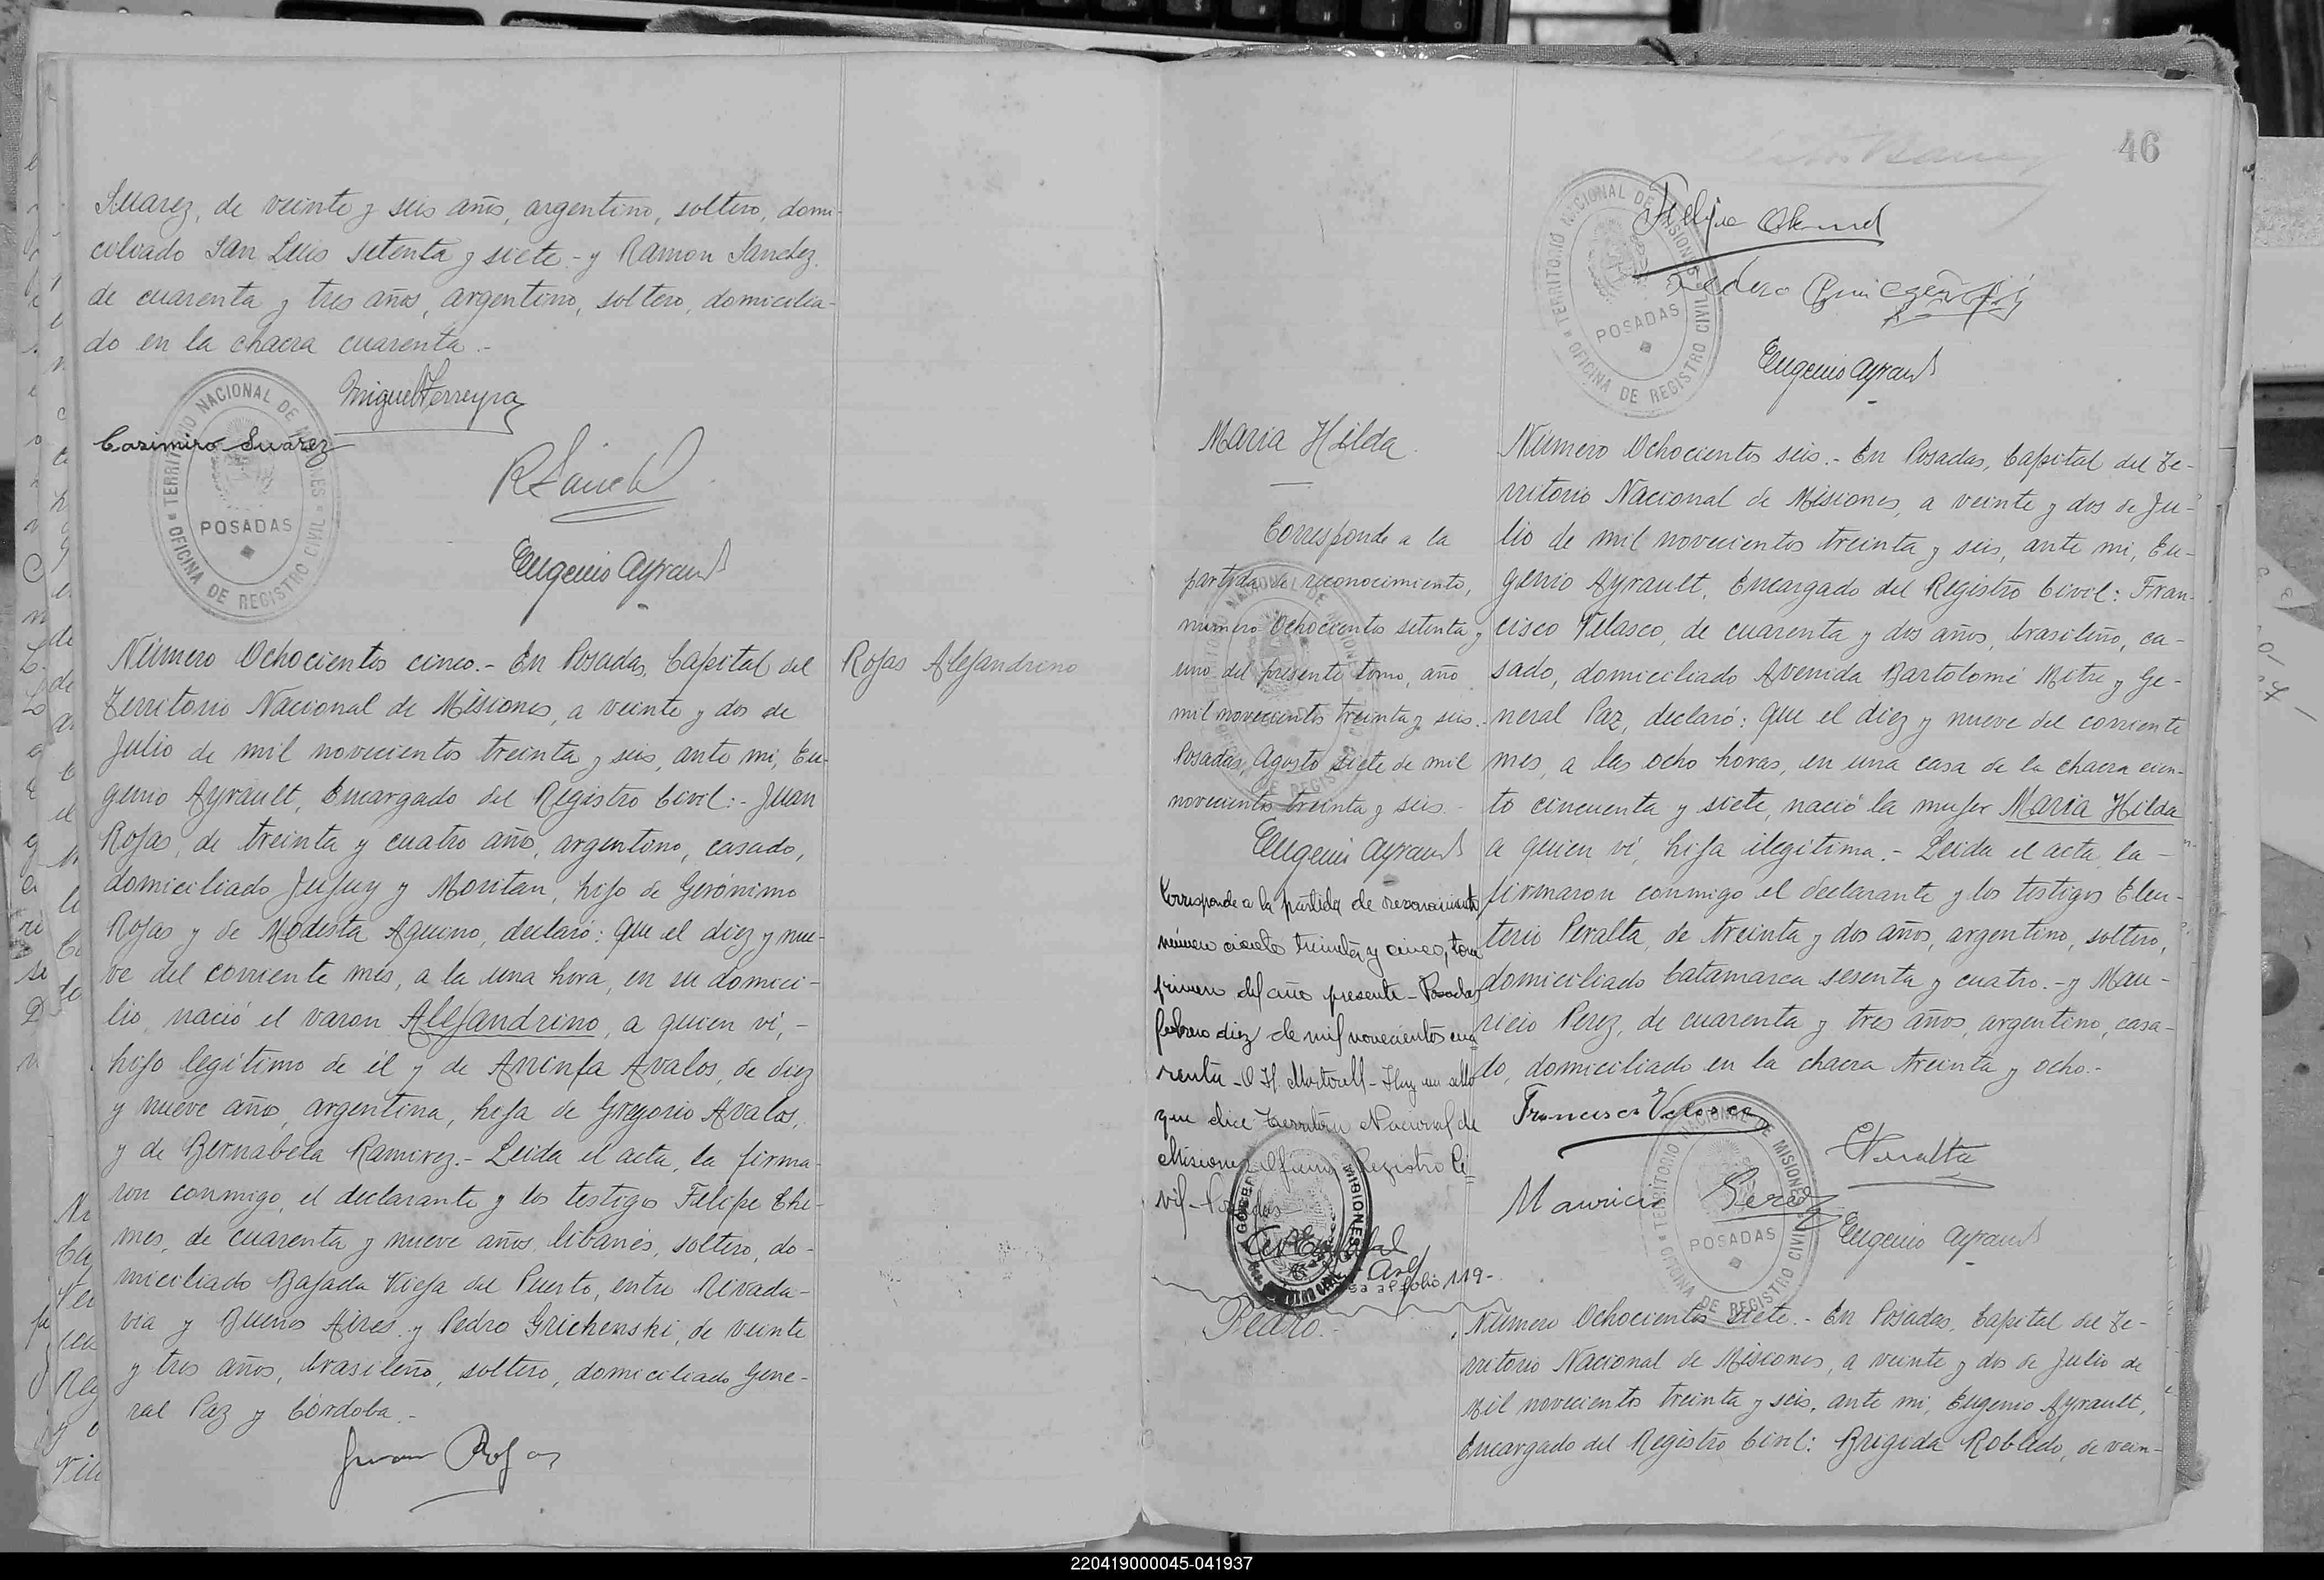 Suarez, de veinte y seis años, argentino, soltero, domi-
ciliado San Luis setenta y siete - y Ramon Sanchez.
de cuarenta y tres años, argentino, soltero, domicilia-
do en la chacra cuarenta.-
Miguel Ferreyra
Casimiro Suárez
TERRITORIO NACIONAL DE MISIONES
POSADAS
OFICINA DE REGISTRO CIVIL
Eugenio Ayrault
Número Ochocientos cinco.- En Posadas, Capital del
Territorio Nacional de Misiones, a veinte y dos de
Julio de mil novecientos treinta y seis, ante mi, Eu-
genio Ayrault, Encargado del Registro Civil:- Juan
Rojas, de treinta y cuatro año, argentino, casado,
domiciliado Jujuy y Moritan, hijo de Gerónimo
Rojas y de Modesta Aquino, declaró: que el diez y nue-
ve del corriente mes, a la una hora, en su domici-
lio, nació el varon Alejandrino, a quien ví,-
hijo legítimo de él y de Arinfa Avalos, de diez
y nueve año, argentina, hija de Gregorio Avalos,
y de Bernabela Ramirez.- Leida el acta, la firma-
ron conmigo, el declarante y los testigos Felipe Che-
mes, de cuarenta y nueve años, libanés, soltero, do-
miciliado Bajada Vieja del Puerto, entre Rivada-
via y Buenos Aires y Pedro Grichenski, de veinte
y tres años, brasileño, soltero, domiciliado Gene-
ral Paz y Córdoba.-
Juan Rojas
Rojas Alejandrino
46
TERRITORIO NACIONAL DE MISIONES
POSADAS
OFICINA DE REGISTRO CIVIL
Felipe
Pedro
Eugenio Ayrault
Maria Hilda.
Corresponde a la
partida de reconocimiento,
numero Ochocientos setenta y
uno del presente tomo, año
mil novecientos treinta y seis.
Posadas, Agosto siete de mil
novecientos treinta y seis.-
Eugenio Ayrault
Corresponde a la partida de reconocimiento
número ciento treinta y cinco, tomo
primero del año presente - Posadas
febrero diez de mil novecientos cua
renta - O H. Martorell - Hay un sello
que dice Territorio Nacional de
Misiones Oficina Registro Ci
vil - Posadas -
MISIONES
folio 119-
Número Ochocientos seis.- En Posadas, Capital del Te-
rritorio Nacional de Misiones, a veinte y dos de Ju-
lio de mil novecientos treinta y seis, ante mi, Eu-
genio Ayrault, Encargado del Registro Civil: Fran-
cisco Velasco, de cuarenta y dos años, brasileño, ca-
sado, domiciliado Avenida Bartolomé Mitre y Ge-
neral Paz, declaró: que el diez y nueve del corriente
mes, a las ocho horas, en una casa de la chacra cien-
to cincuenta y siete, nació la mujer Maria Hilda
a quien ví, hija ilegítima.- Leida el acta, la-
firmaron conmigo el declarante y los testigos Eleu-
terio Peralta, de treinta y dos años, argentino, soltero,
domiciliado Catamarca sesenta y cuatro.- y Mau-
ricio Perez, de cuarenta y tres años, argentino, casa-
do, domiciliado en la chacra treinta y ocho.-
Francisco Velasco
EPeralta
Mauricio Perez
Eugenio Ayrault
TERRITORIO NACIONAL DE MISIONES
POSADAS
OFICINA DE REGISTRO CIVIL
Pedro.-
Número Ochocientos siete.- En Posadas, Capital del Te-
rritorio Nacional de Misiones, a veinte y dos de Julio de
mil novecientos treinta y seis, ante mi, Eugenio Ayrault,
Encargado del Registro Civil: Brigida Robledo, de vein-
220419000045-041937